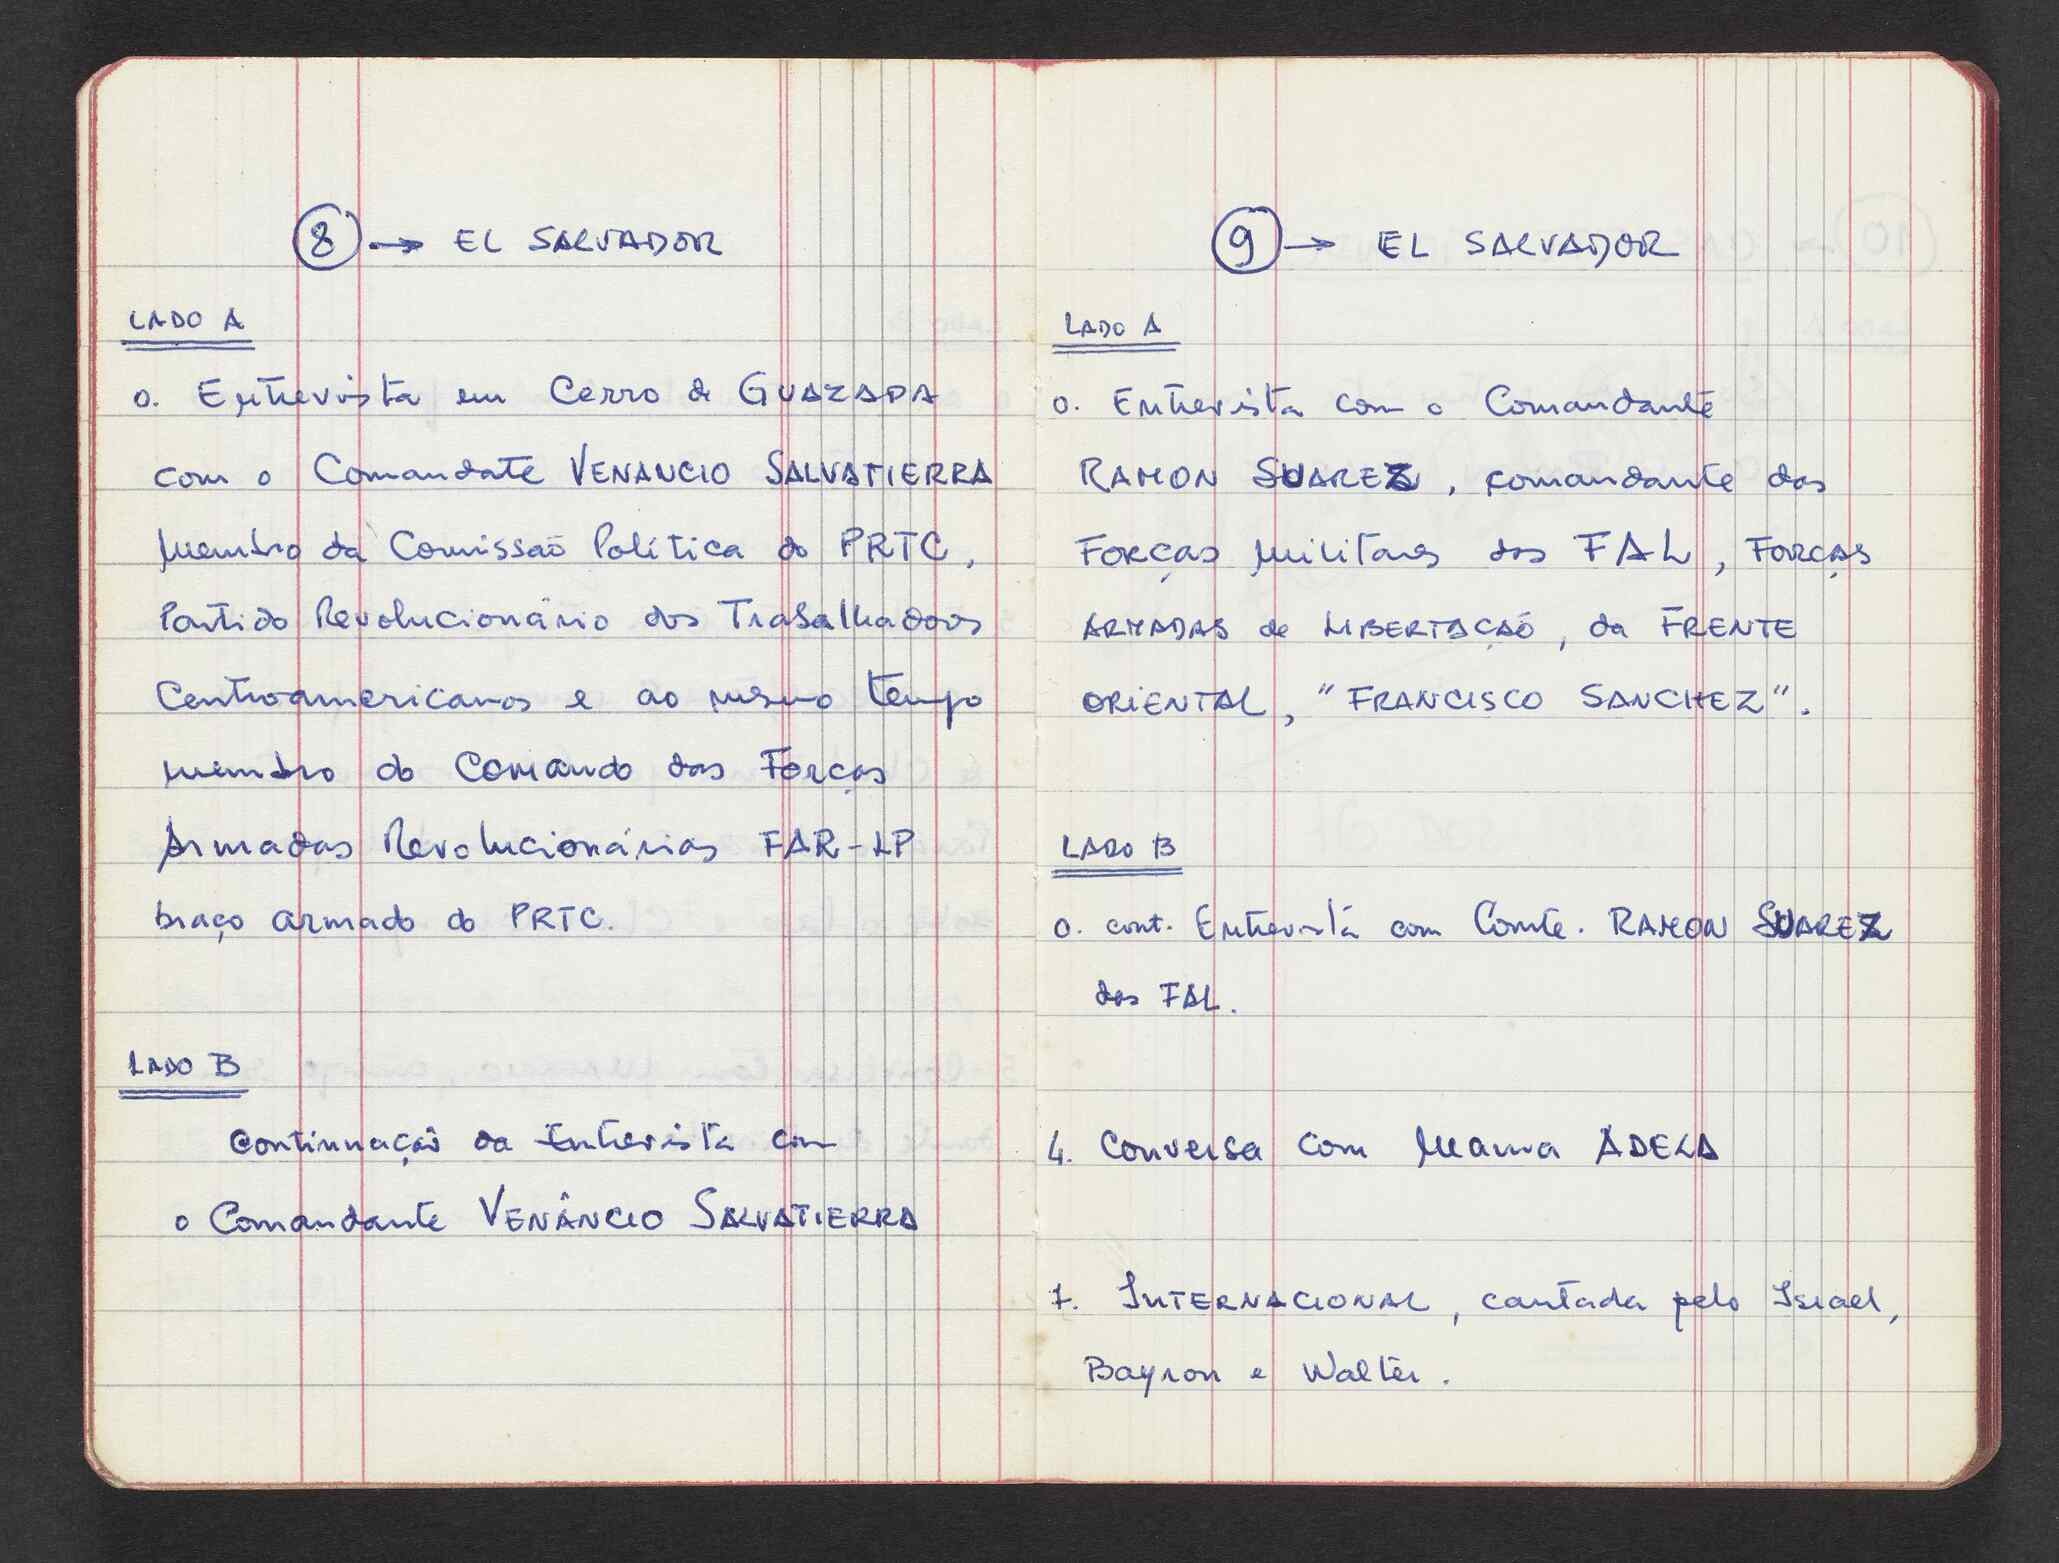 8 → EL SALVADOR
LADO A
0. Entrevista em Cerro de GUAZAPA
com o Comandate VENANCIO SALVATIERRA
membro da Comissão Política do PRTC,
Partido Revolucionário dos Trabalhadores
Centroamericanos e ao mesmo tempo
membro do Comando das Forças
Armadas Revolucionárias FAR-LP
braço armado do PRTC.
LADO B
Continuação da Entrevista com
o Comandante VENÂNCIO SALVATIERRA
9 → EL SALVADOR
LADO A
0. Entrevista com o Comandante
RAMON SUAREZ, comandante das
FORÇAS Militares das FAL, FORÇAS
ARMADAS de LIBERTAÇÃO, da FRENTE
ORIENTAL, "FRANCISCO SANCHEZ".
LADO B
0. cont. Entrevista com Comte. RAMON SUAREZ
das FAL.
4. Conversa com Mama ADELA
7. INTERNACIONAL, cantada pelo Israel,
Bayron e Walter.